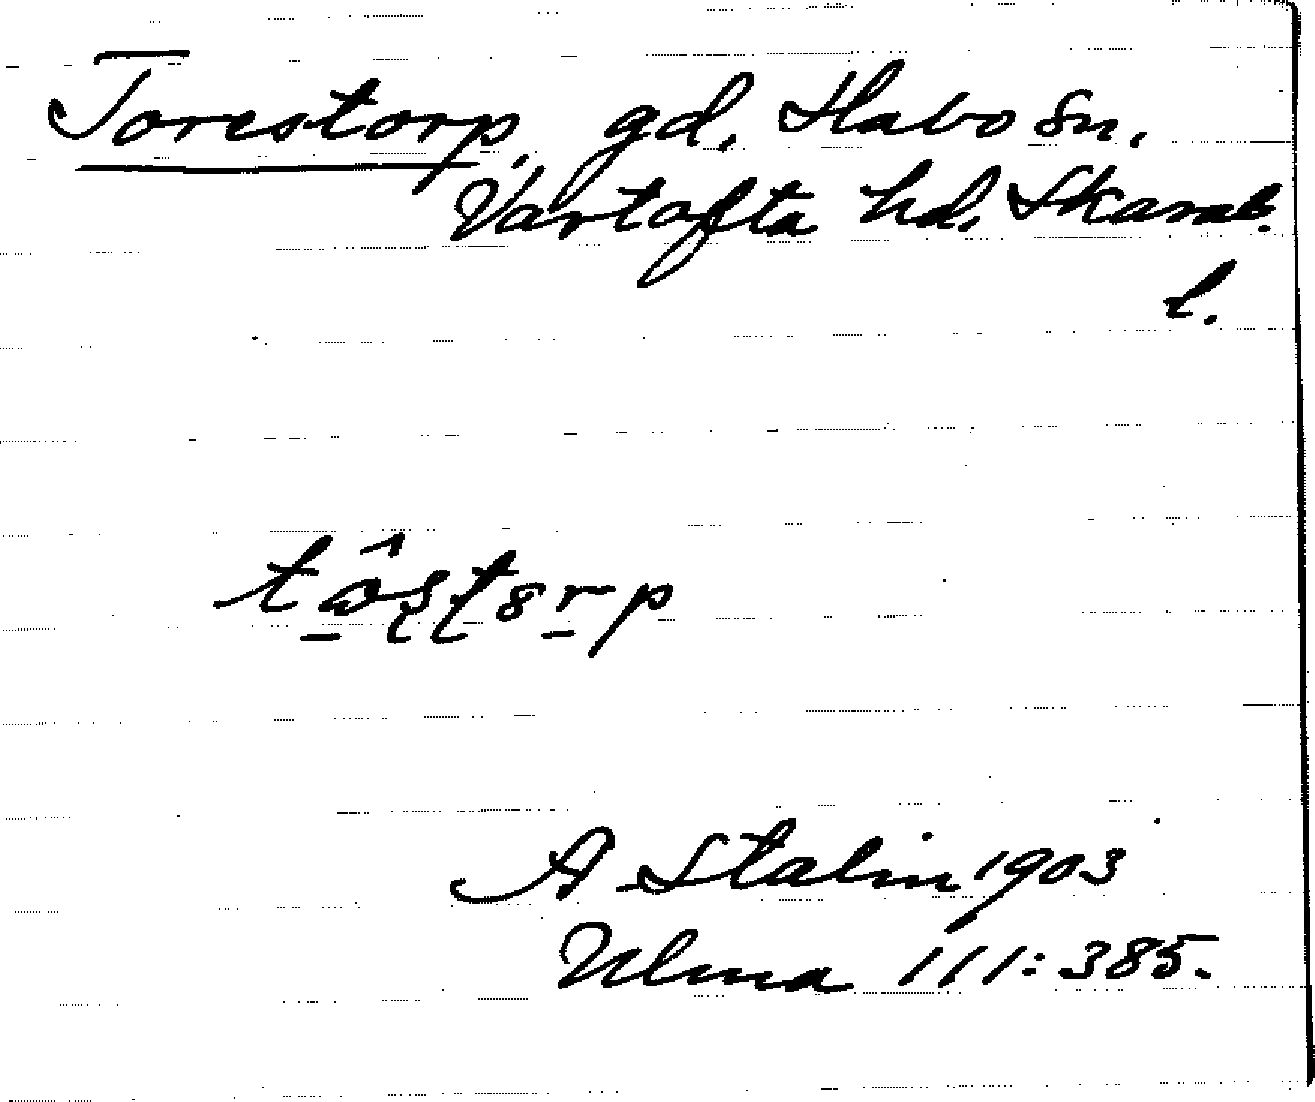 Torestorp, gd. Habo sn.
Vartofta hd. Skarab.
l.
A Stalin 1903
Ulma 111:385.